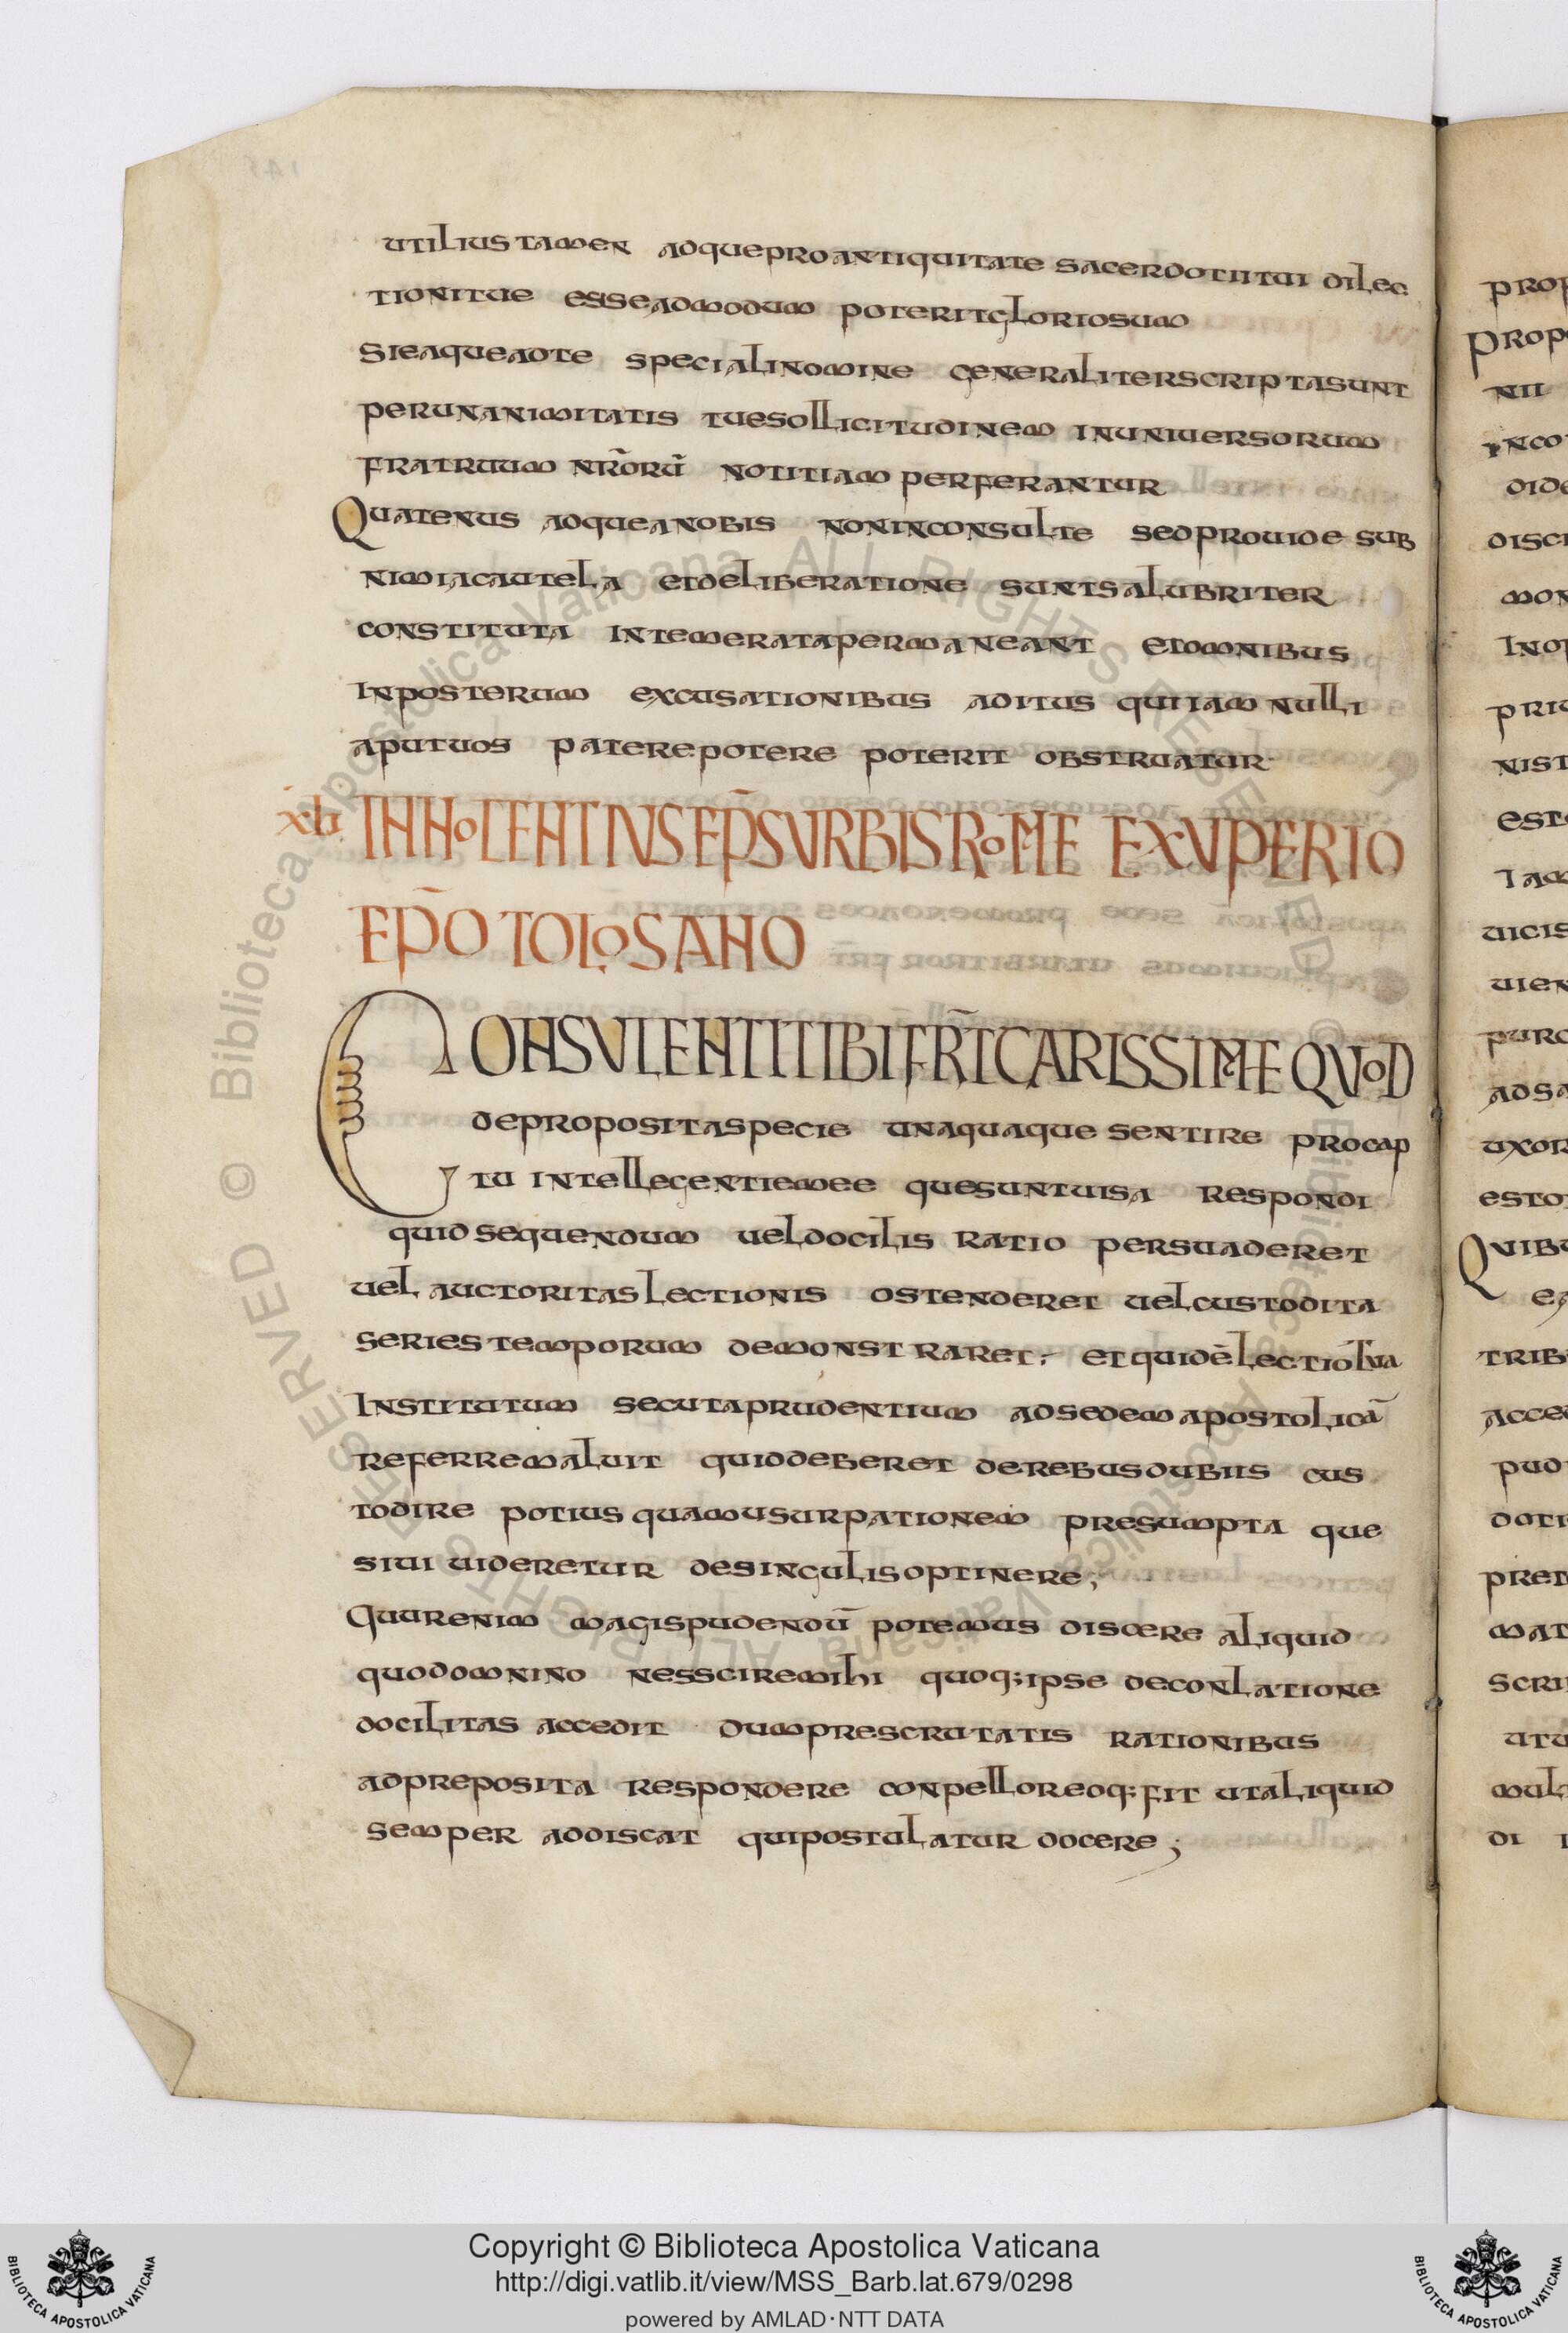 utilius tamen adque pro antiquitate sacerdotii tui dilec
tioni tue esse admodum poterit gloriosum
Si ea que ad te speciali nomine generaliter scripta sunt
per unanimitatis tue sollicitudinem in universorum
fratruum nr̄orū notitiam perferantur
Quatenus adque a nobis non inconsulte sed provide sub
nimia cautela et deliberatione sunt salubriter
constituta intemerata permaneant et omnibus
in posterum excusationibus aditus qui iam nulli
aput uos patere potere poterit obstruatur
INNOCENTIVS EP̄S VRBIS ROME EXVPERIO
EP̄O TOLOSANO
CONSVLENTI TIBI FR̄T CARISSIME QVOD
de proposita specie unaquaque sentire pro cap
tu intellecentie mee que sunt uisa respondi
quid sequendum uel docilis ratio persuaderet
uel auctoritas lectionis ostenderet uel custodita
series temporum demonstraret; et quidē lectio tua
Institutum secuta prudentium ad sedem apostolicā
referre maluit quid deberet de rebus dubiis cus
todire potius quam usurpationem presumpta que
sivi uideretur de singulis optinere;
Quur enim magis pudendū potemus discere aliquid
quod omnino nesscire mihi quoq; ipse de conlatione
docilitas accedit dum prescrutatis rationibus
ad preposita respondere conpellor eoq; fit ut aliquid
semper addiscat qui postulatur docere;
Copyright © Biblioteca Apostolica Vaticana
http://digi.vatlib.it/view/MSS_Barb.lat.679/0298
powered by AMLAD·NTT DATA
BIBLIOTECA APOSTOLICA VATICANA
BIBLIOTECA APOSTOLICA VATICANA